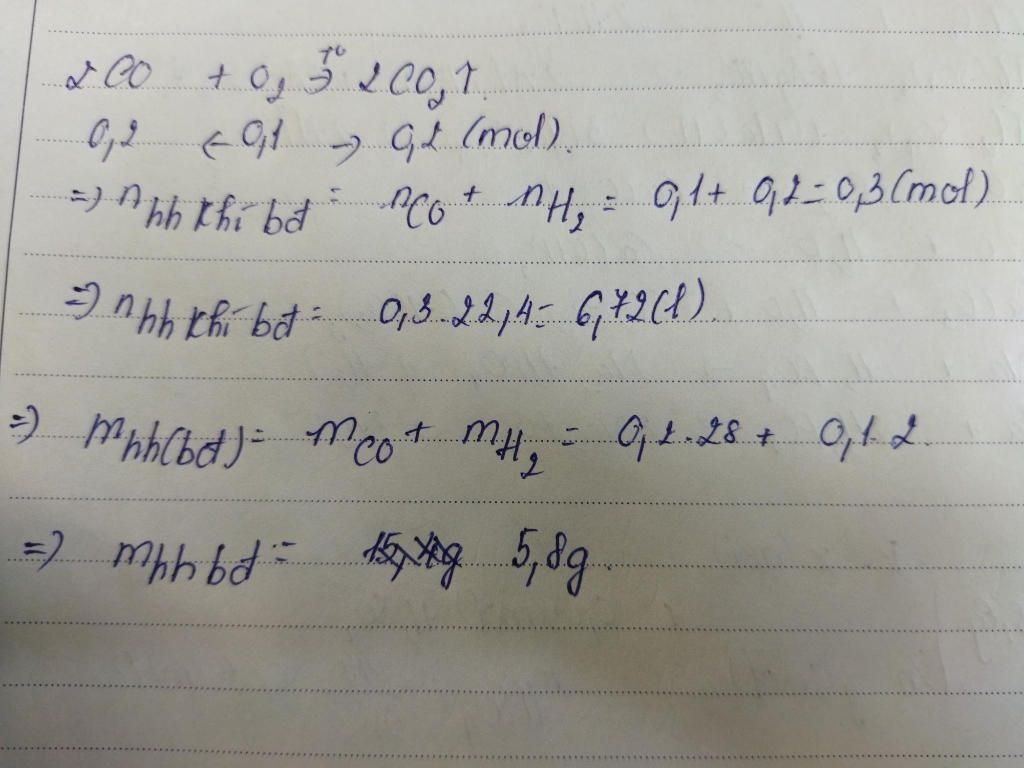 2CO + O₂ →t° 2CO₂↑.
0,2 ← 0,1 → 0,2 (mol).
=> n hh khí bđ = nCO + nH₂ = 0,1 + 0,2 = 0,3 (mol)
=> n hh khí bđ = 0,3 . 22,4 = 6,72 (l).
=> m hh(bđ) = mCO + mH₂ = 0,2 . 28 + 0,1 . 2.
=> m hh bđ = 5,8g.